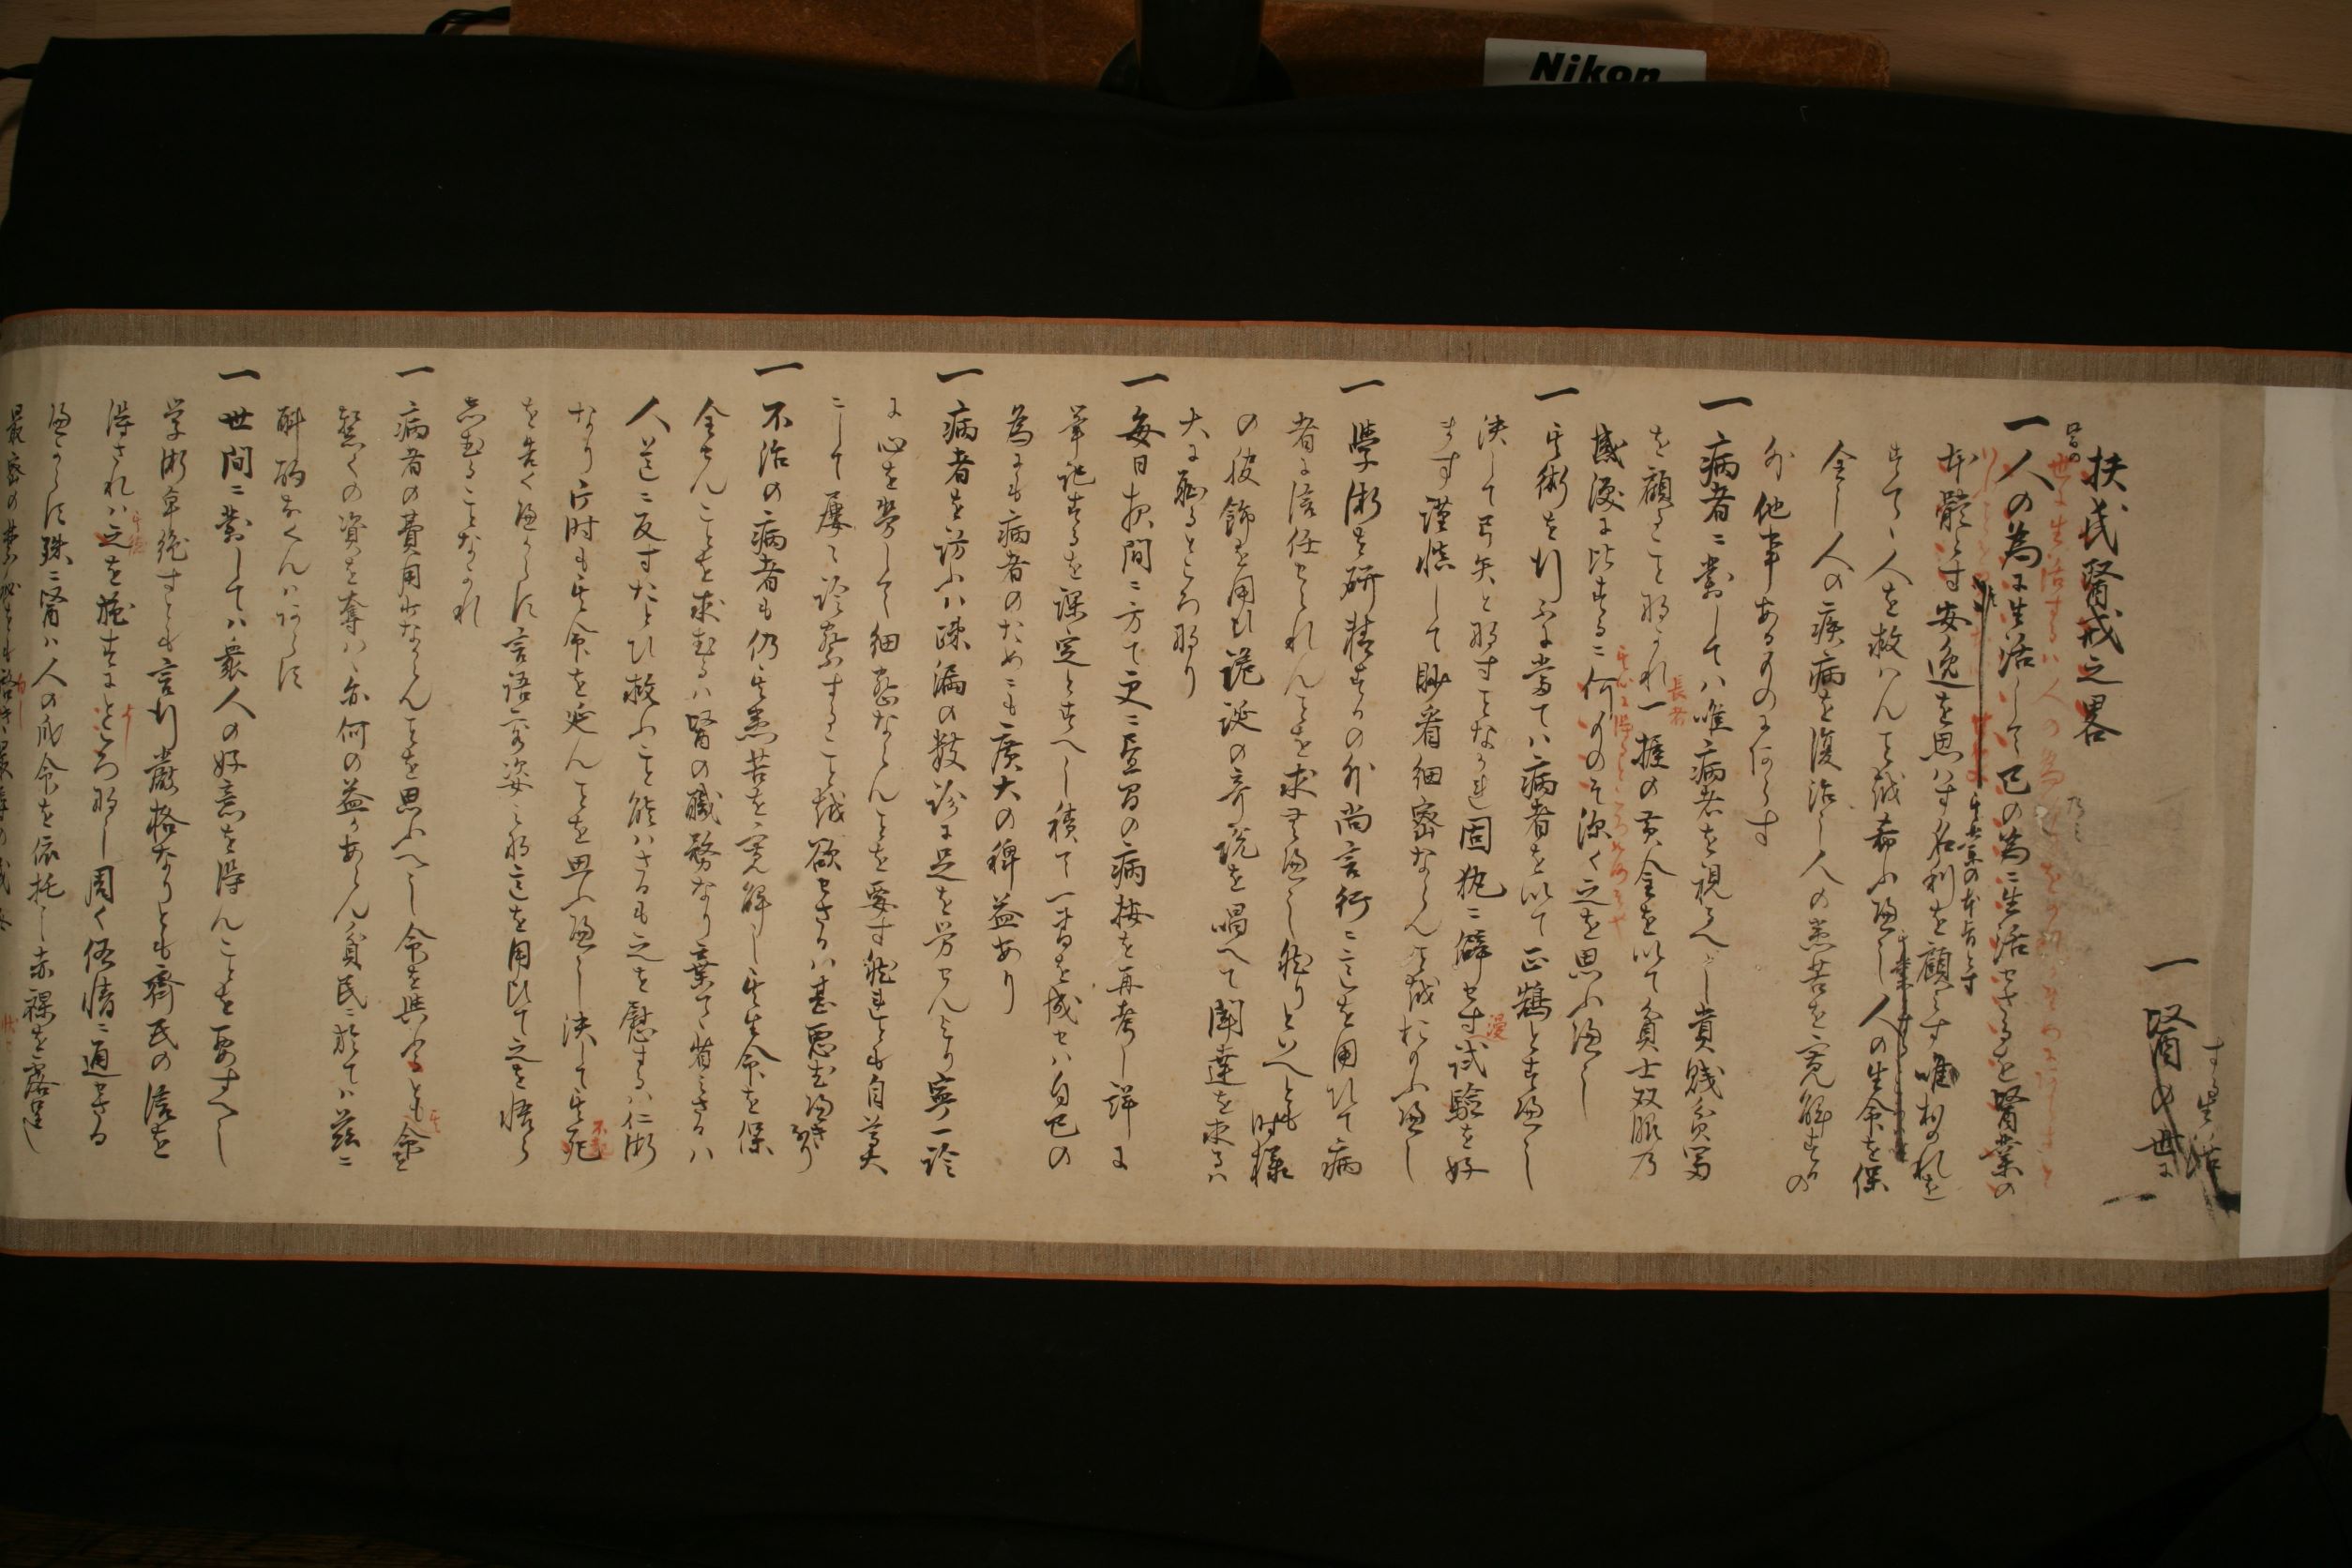 Nikon
一 醫の世に
する生活
扶氏醫戒之畧
一人の為に生活して己の為に生活せさるを醫業の
本體とす安逸を思はす名利を顧らす唯おのれを
すてゝ人を救はんことを希ふへし人の生命を保
全し人の疾病を復治し人の患苦を寛解するの
外他事あるものにあらす
一病者に對しては唯病者を視るへし貴賤貧富
を顧ることなかれ一握の黄金を以て貧士双眼の
感涙に比するに何ものそ深く之を思ふへし
一其術を行ふに當ては病者を以て正鵠とすへし
決して弓矢となすことなかれ固執に僻せす試験を好
ます謹慎して眇看細密ならんことをおもふへし
一學術を研精するの外尚言行に意を用ひて病
者に信任せられんことを求むへし然りといへとも時様
の服飾を用ひ詭誕の奇説を唱へて聞達を求るは
大に恥るところなり
一每日夜間に方て更に昼間の病按を再考し詳に
筆記するを課定とすへし積て一書を成せは自己の
為にも病者のためにも廣大の裨益あり
一病者を訪ふは疎漏の數診に足を労せんより寧一診
に心を労して細密ならんことを要す然れとも自尊大
にして屡々診察することを欲せさるは甚悪むへきなり
一不治の病者も仍其患苦を寛解し其生命を保
全せんことを求むるは醫の職務なり棄てゝ省みさるは
人道に反すたとひ救ふこと能はさるも之を慰するは仁術
なり片時も其命を延んことを思ふへし決して其死
を告くへからす言語容姿みな意を用ひて之を悟らし
むることなかれ
一病者の費用少なからんことを思ふへし命を與ふるとも命を
繋くの資を奪はゝ亦何の益かあらん貧民に於ては茲に
斟酌なくんはあらす
一世間に對しては衆人の好意を得んことを要すへし
学術卓絶すとも言行嚴格なりとも齊民の信を
得されは之を施すにところなし周く俗情に通せさる
へからす殊に醫は人の命を依托し赤裸を露呈し
最密の禁秘をも